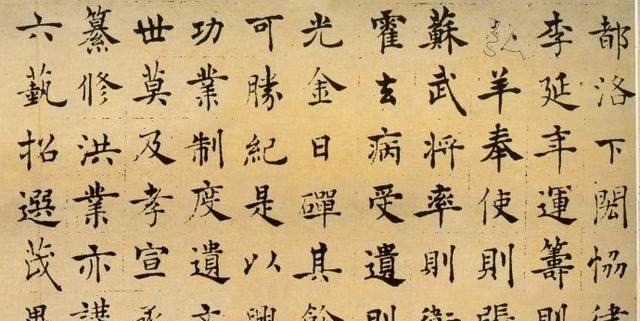 都洛下閎恊律
李延年運籌則
羊奉使則張
蘇武將率則衛
霍去病受遺則
光金日磾其餘
可勝紀是以興
功業制度遺文
世莫及孝宣承
纂修洪業亦講
六藝招選茂異